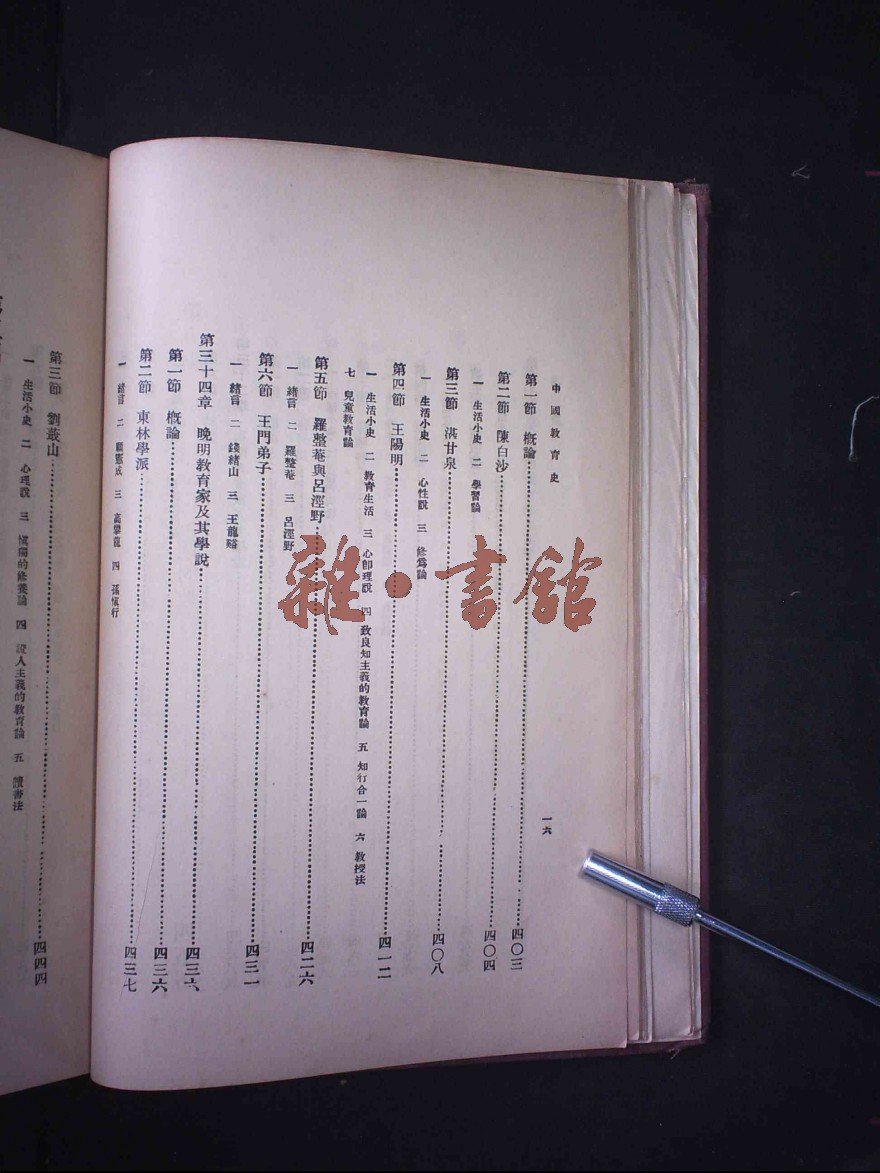 中國教育史
一六
第一節 概論……四〇三
第二節 陳白沙……四〇四
一 生活小史 二 學習論
第三節 湛甘泉……四〇八
一 生活小史 二 心性說 三 修爲論
第四節 王陽明……四一二
一 生活小史 二 教育生活 三 心卽理說 四 致良知主義的教育論 五 知行合一論 六 教授法
七 兒童教育論
第五節 羅整菴與呂涇野……四二六
一 緒言 二 羅整菴 三 呂涇野
第六節 王門弟子……四三一
一 緒言 二 錢緒山 三 王龍谿
第三十四章 晚明教育家及其學說……四三六
第一節 概論……四三六
第二節 東林學派……四三七
一 緒言 二 顧憲成 三 高攀龍 四 孫愼行
第三節 劉蕺山……四四四
一 生活小史 二 心理說 三 愼獨的修養論 四 證人主義的教育論 五 讀書法
雜·書館